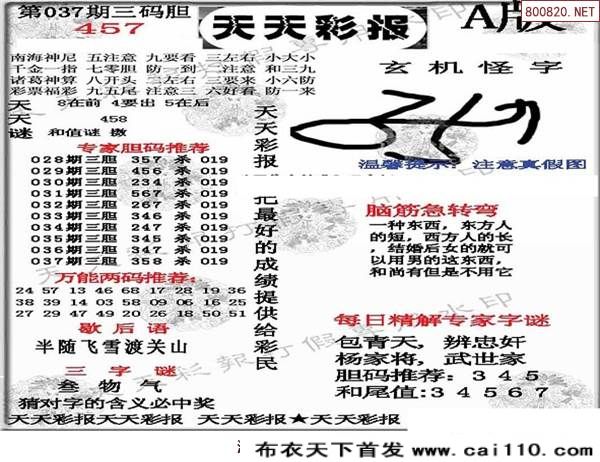 第037期三码胆
457
天天彩报
A版
800820.NET
南海神尼 五注意 九要看 三左右 小大小
千金一指 七零胆 防一到 二注意 和三九
诸葛神算 八开头 二左右 三要来 小六防
彩票福彩 九五尾 注意三 六好看 防一来
天天谜
8在前 4要出 5在后
458
和值谜 撒
玄机怪字
温馨提示：注意真假图
专家胆码推荐
028期三胆 357 杀 019
029期三胆 456 杀 019
030期三胆 234 杀 019
031期三胆 567 杀 019
032期三胆 267 杀 019
033期三胆 346 杀 019
034期三胆 247 杀 019
035期三胆 345 杀 019
036期三胆 347 杀 019
037期三胆 358 杀 019
万能两码推荐：
24 57 13 46 68 17 28 19 36
38 39 14 03 58 09 06 16 25
27 29 47 49 20 26 18 50 51
歇后语
半随飞雪渡关山
三字谜
叁物气
猜对字的含义必中奖
天天彩报
把最好的成绩提供给彩民
脑筋急转弯
一种东西，东方人
的短，西方人的长
，结婚后女的就可
以用男的这东西，
和尚有但是不用它
每日精解专家字谜
包青天，辨忠奸
杨家将，武世家
胆码推荐：345
和尾值：34567
天天彩报天天彩报 天天彩报★天天彩报
布衣天下首发 www.cai110.com